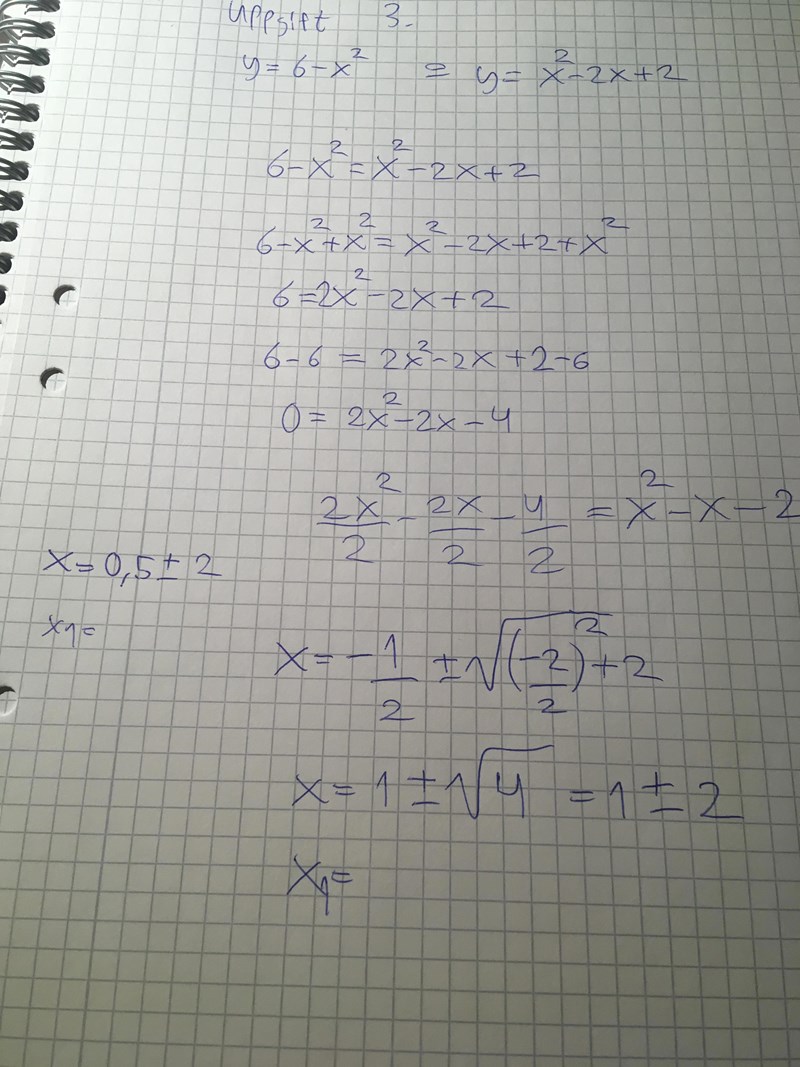 Uppgift 3.
y = 6 - x² = y = x² - 2x + 2
6 - x² = x² - 2x + 2
6 - x² + x² = x² - 2x + 2 + x²
6 = 2x² - 2x + 2
6 - 6 = 2x² - 2x + 2 - 6
0 = 2x² - 2x - 4
2x²/2 - 2x/2 - 4/2 = x² - x - 2
x = 0,5 ± 2
x1 =
x = -1/2 ± √((-2/2)² + 2)
x = 1 ± √4 = 1 ± 2
x₁ =